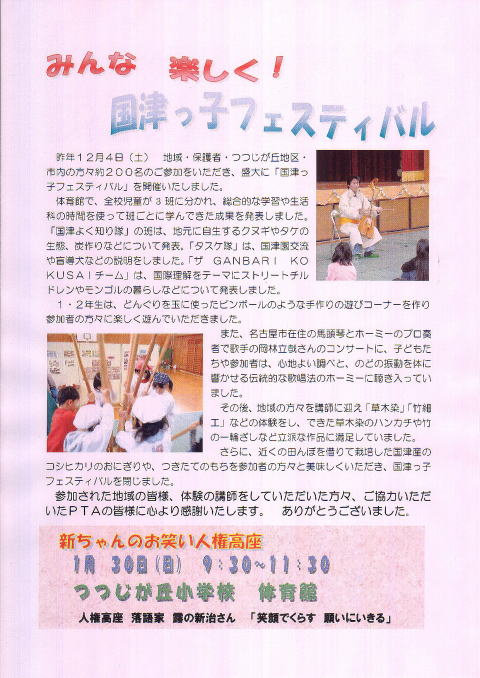 みんな　楽しく！
国津っ子フェスティバル
昨年１２月４日（土）　地域・保護者・つつじが丘地区・
市内の方々約２００名のご参加をいただき、盛大に「国津っ
子フェスティバル」を開催いたしました。
体育館で、全校児童が３班に分かれ、総合的な学習や生活
科の時間を使って班ごとに学んできた成果を発表しました。
「国津よく知り隊」の班は、地元に自生するクヌギやタケの
生態、炭作りなどについて発表。「タスケ隊」は、国津園交流
や盲導犬などの説明をしました。「ザ　ＧＡＮＢＡＲＩ　ＫＯ
ＫＵＳＡＩチーム」は、国際理解をテーマにストリートチル
ドレンやモンゴルの暮らしなどについて発表しました。
１・２年生は、どんぐりを玉に使ったピンボールのような手作りの遊びコーナーを作り
参加者の方々に楽しく遊んでいただきました。
また、名古屋市在住の馬頭琴とホーミーのプロ奏
者で歌手の岡林立哉さんのコンサートに、子どもた
ちや参加者は、心地よい調べと、のどの振動を体に
響かせる伝統的な歌唱法のホーミーに聴き入ってい
ました。
その後、地域の方々を講師に迎え「草木染」「竹細
工」などの体験をし、できた草木染のハンカチや竹
の一輪ざしなど立派な作品に満足していました。
さらに、近くの田んぼを借りて栽培した国津産の
コシヒカリのおにぎりや、つきたてのもちを参加者の方々と美味しくいただき、国津っ子
フェスティバルを閉じました。
参加された地域の皆様、体験の講師をしていただいた方々、ご協力いただ
いたＰＴＡの皆様に心より感謝いたします。　ありがとうございました。
新ちゃんのお笑い人権高座
１月　３０日（日）　９：３０～１１：３０
つつじが丘小学校　体育館
人権高座　落語家　露の新治さん　「笑顔でくらす　願いにいきる」